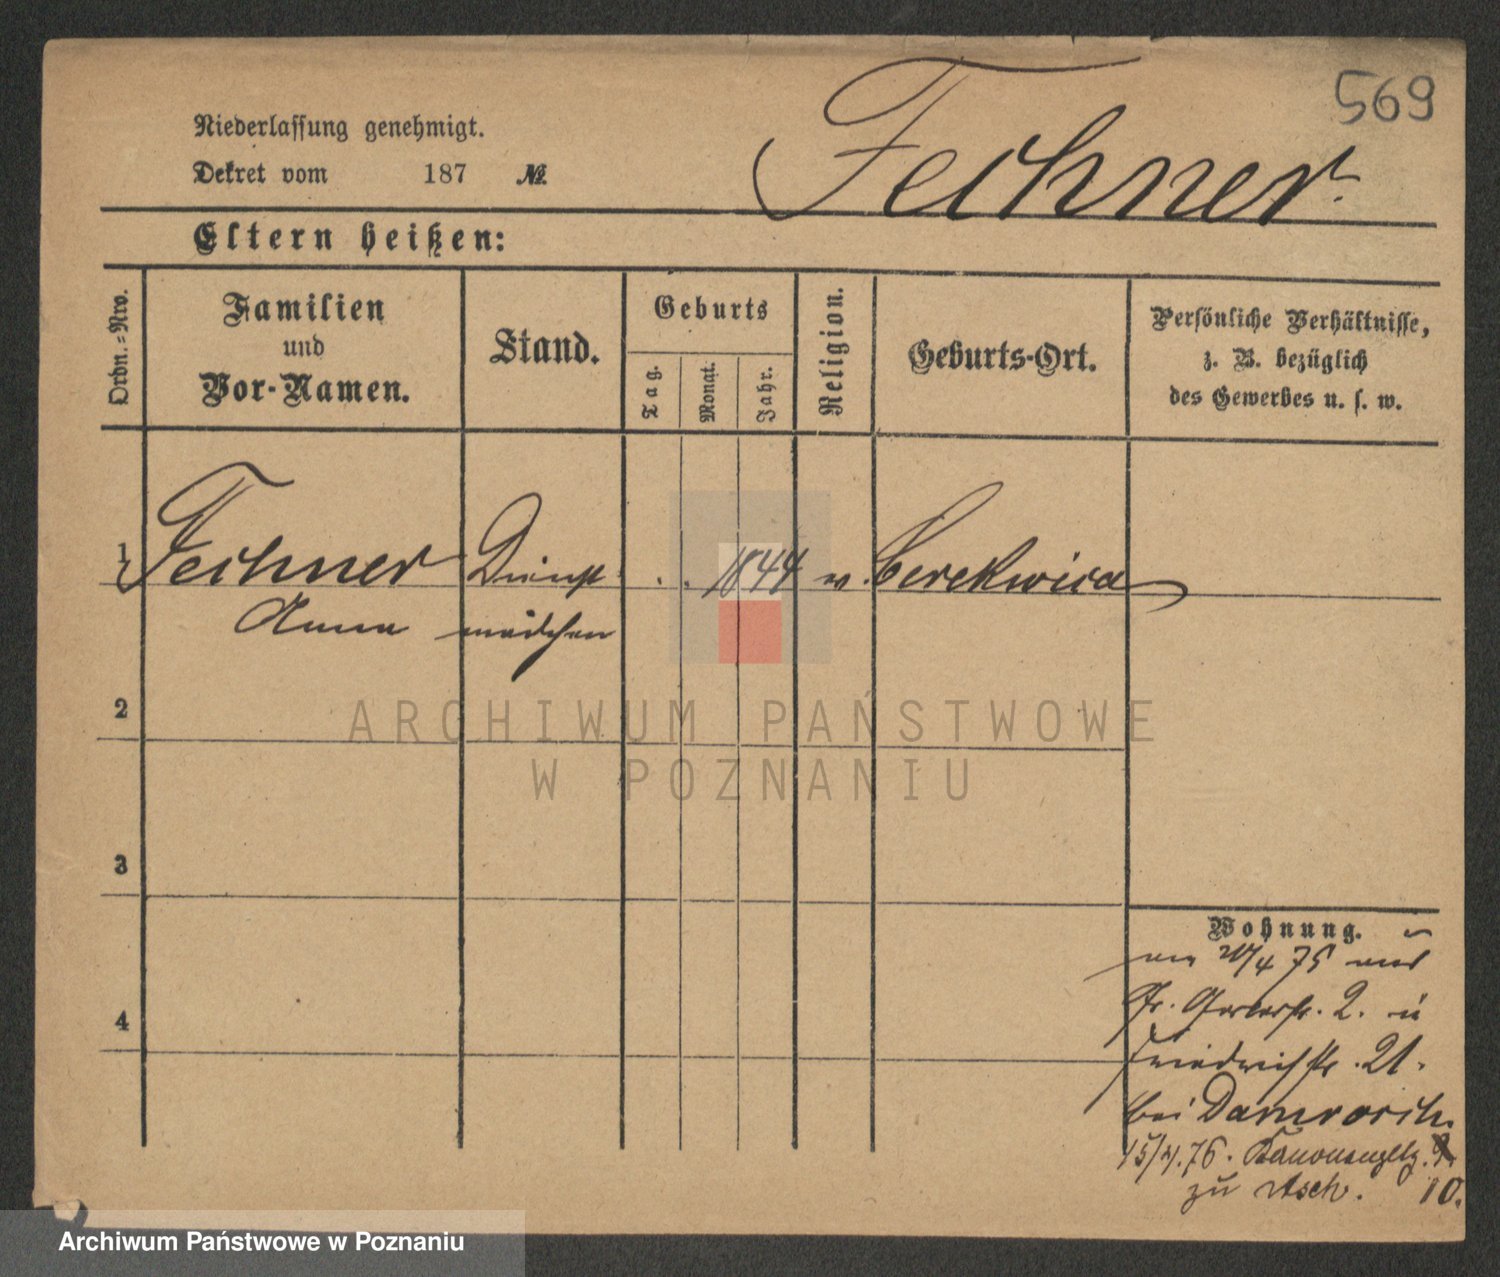 569
Fechner.
Niederlassung genehmigt.
Dekret vom 187 №
Eltern heißen:
Ordn.=Nro.
Familien
und
Vor-Namen.
Stand.
Geburts
Tag.
Monat.
Jahr.
Religion.
Geburts-Ort.
Persönliche Verhältnisse,
z. B. bezüglich
des Gewerbes u. s. w.
1 Fechner Dienst . . 1844 Cerekwica
Anna mädchen
2
ARCHIWUM PAŃSTWOWE
W POZNANIU
3
Wohnung.
20/4 75
Gr. Gerberstr. 2.
4
Friedrichstr. 21.
bei Damrosch.
15/4.76. Kanonenpltz. 9
zu Asch. 10.
Archiwum Państwowe w Poznaniu